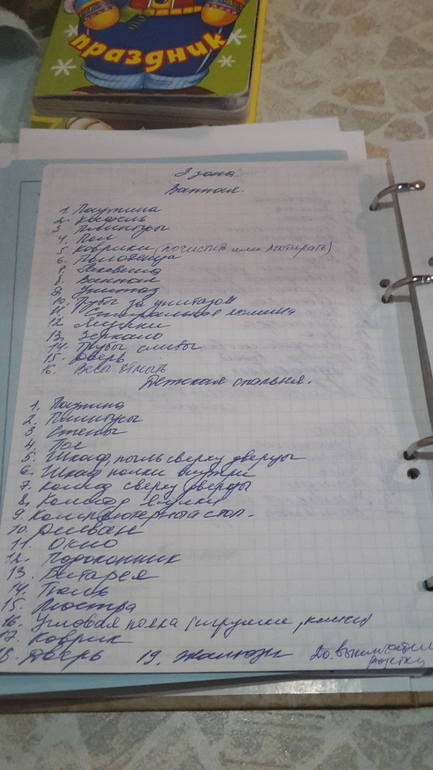 праздник
3 зона.
Ванная.
1. Паутина
2. Кафель
3. Плинтуры
4. Пол
5. Коврики (почистить или постирать)
6. Полотенца
7. Раковина
8. Ванная
9. Унитаз
10. Трубы за унитазом
11. Стиральная машина
12. Ящики
13. Зеркало
14. Трубы сливы
15. Дверь
16. Весы отмыть
Детская спальня.
1. Паутина
2. Плинтуры
3. Стены
4. Пол
5. Шкаф, пыль сверху, дверцы
6. Шкаф полки внутри
7. Комод сверху, дверцы
8. Комод ящики
9. Компьютерный стол.
10. Диван
11. Окно
12. Подоконник
13. Батарея
14. Тюль
15. Люстра
16. Угловая полка (игрушки, книги)
17. Коврик
18. Дверь 19. Жалюзи 20. выключатели розетки